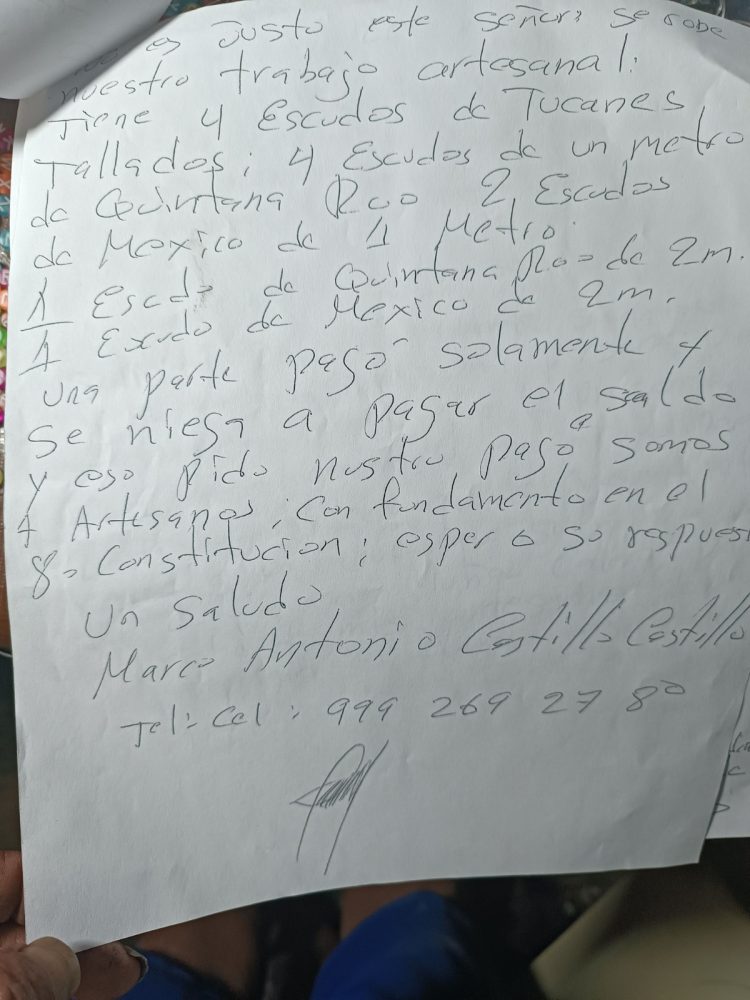 no es Justo este señor; se robe
nuestro trabajo artesanal:
Tiene 4 Escudos de Tucanes
Tallados; 4 Escudos de un metro
de Quintana Roo 2 Escudos
de Mexico de 1 Metro.
1 Escudo de Quintana Roo de 2m.
1 Escudo de Mexico de 2m.
una parte pagó solamente y
se niega a pagar el saldo
y eso pido nustro pago a somos
4 Artesanos; Con fundamento en el
8o Constitucion; espero so respues
Un Saludo
Marco Antonio Castillo Castillo
Tel: Cel: 999 269 27 80